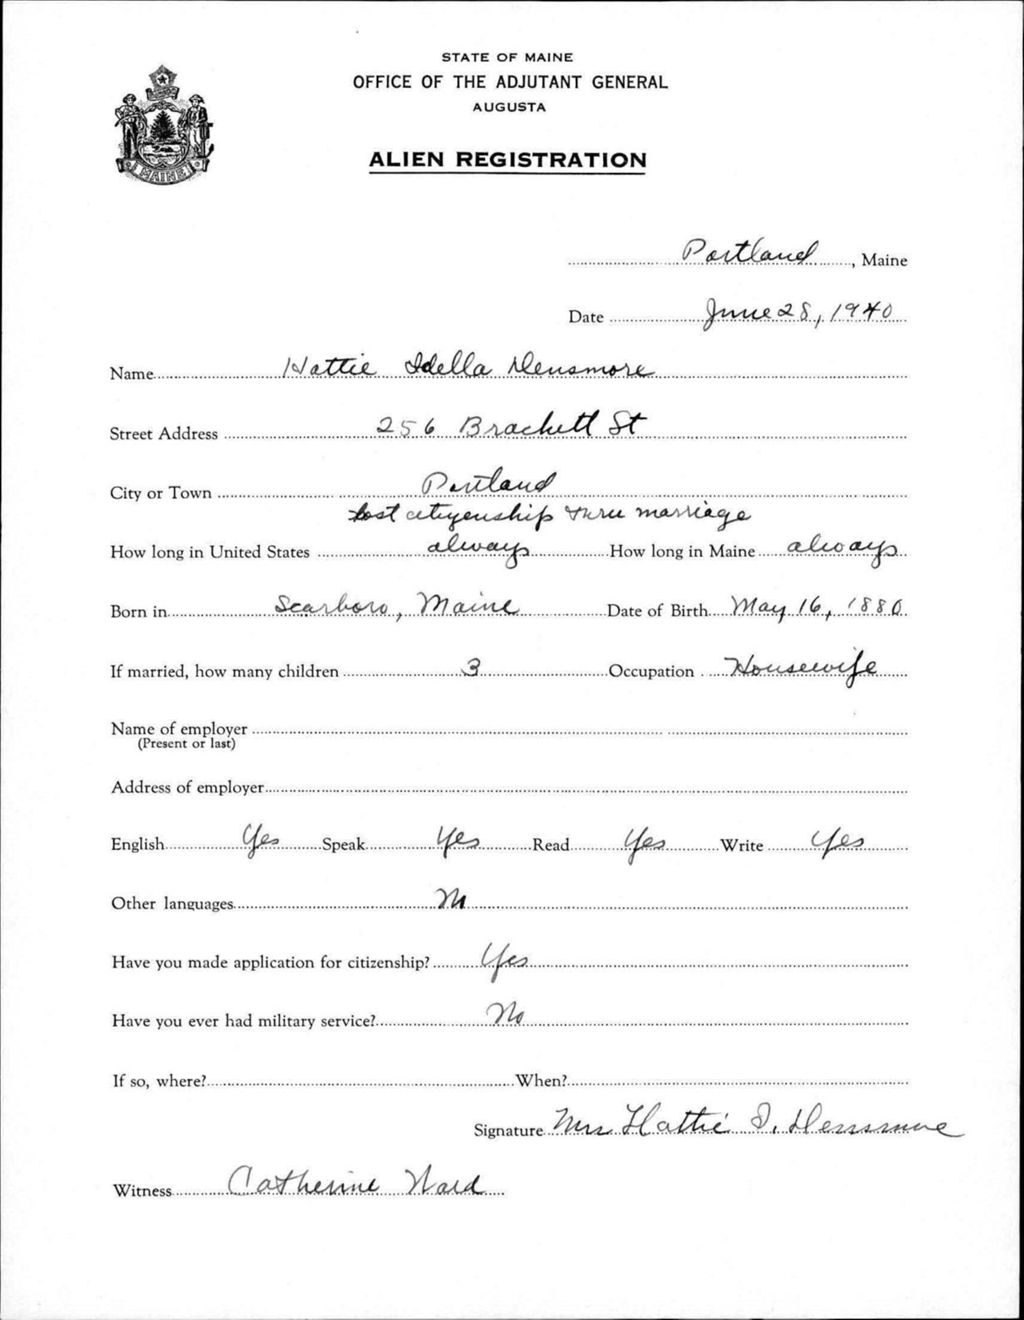 STATE OF MAINE
OFFICE OF THE ADJUTANT GENERAL
AUGUSTA
ALIEN REGISTRATION
MAINE
Portland, Maine
Date June 28, 1940
Name Hattie Idella Densmore
Street Address 256 Brackett St
City or Town Portland
lost citizenship thru marriage
How long in United States always How long in Maine always
Born in Scarboro, Maine Date of Birth May 16, 1880
If married, how many children 3 Occupation Housewife
Name of employer
(Present or last)
Address of employer
English Yes Speak Yes Read Yes Write Yes
Other languages No
Have you made application for citizenship? Yes
Have you ever had military service? No
If so, where? When?
Signature Mrs Hattie I. Densmore
Witness Catherine Ward